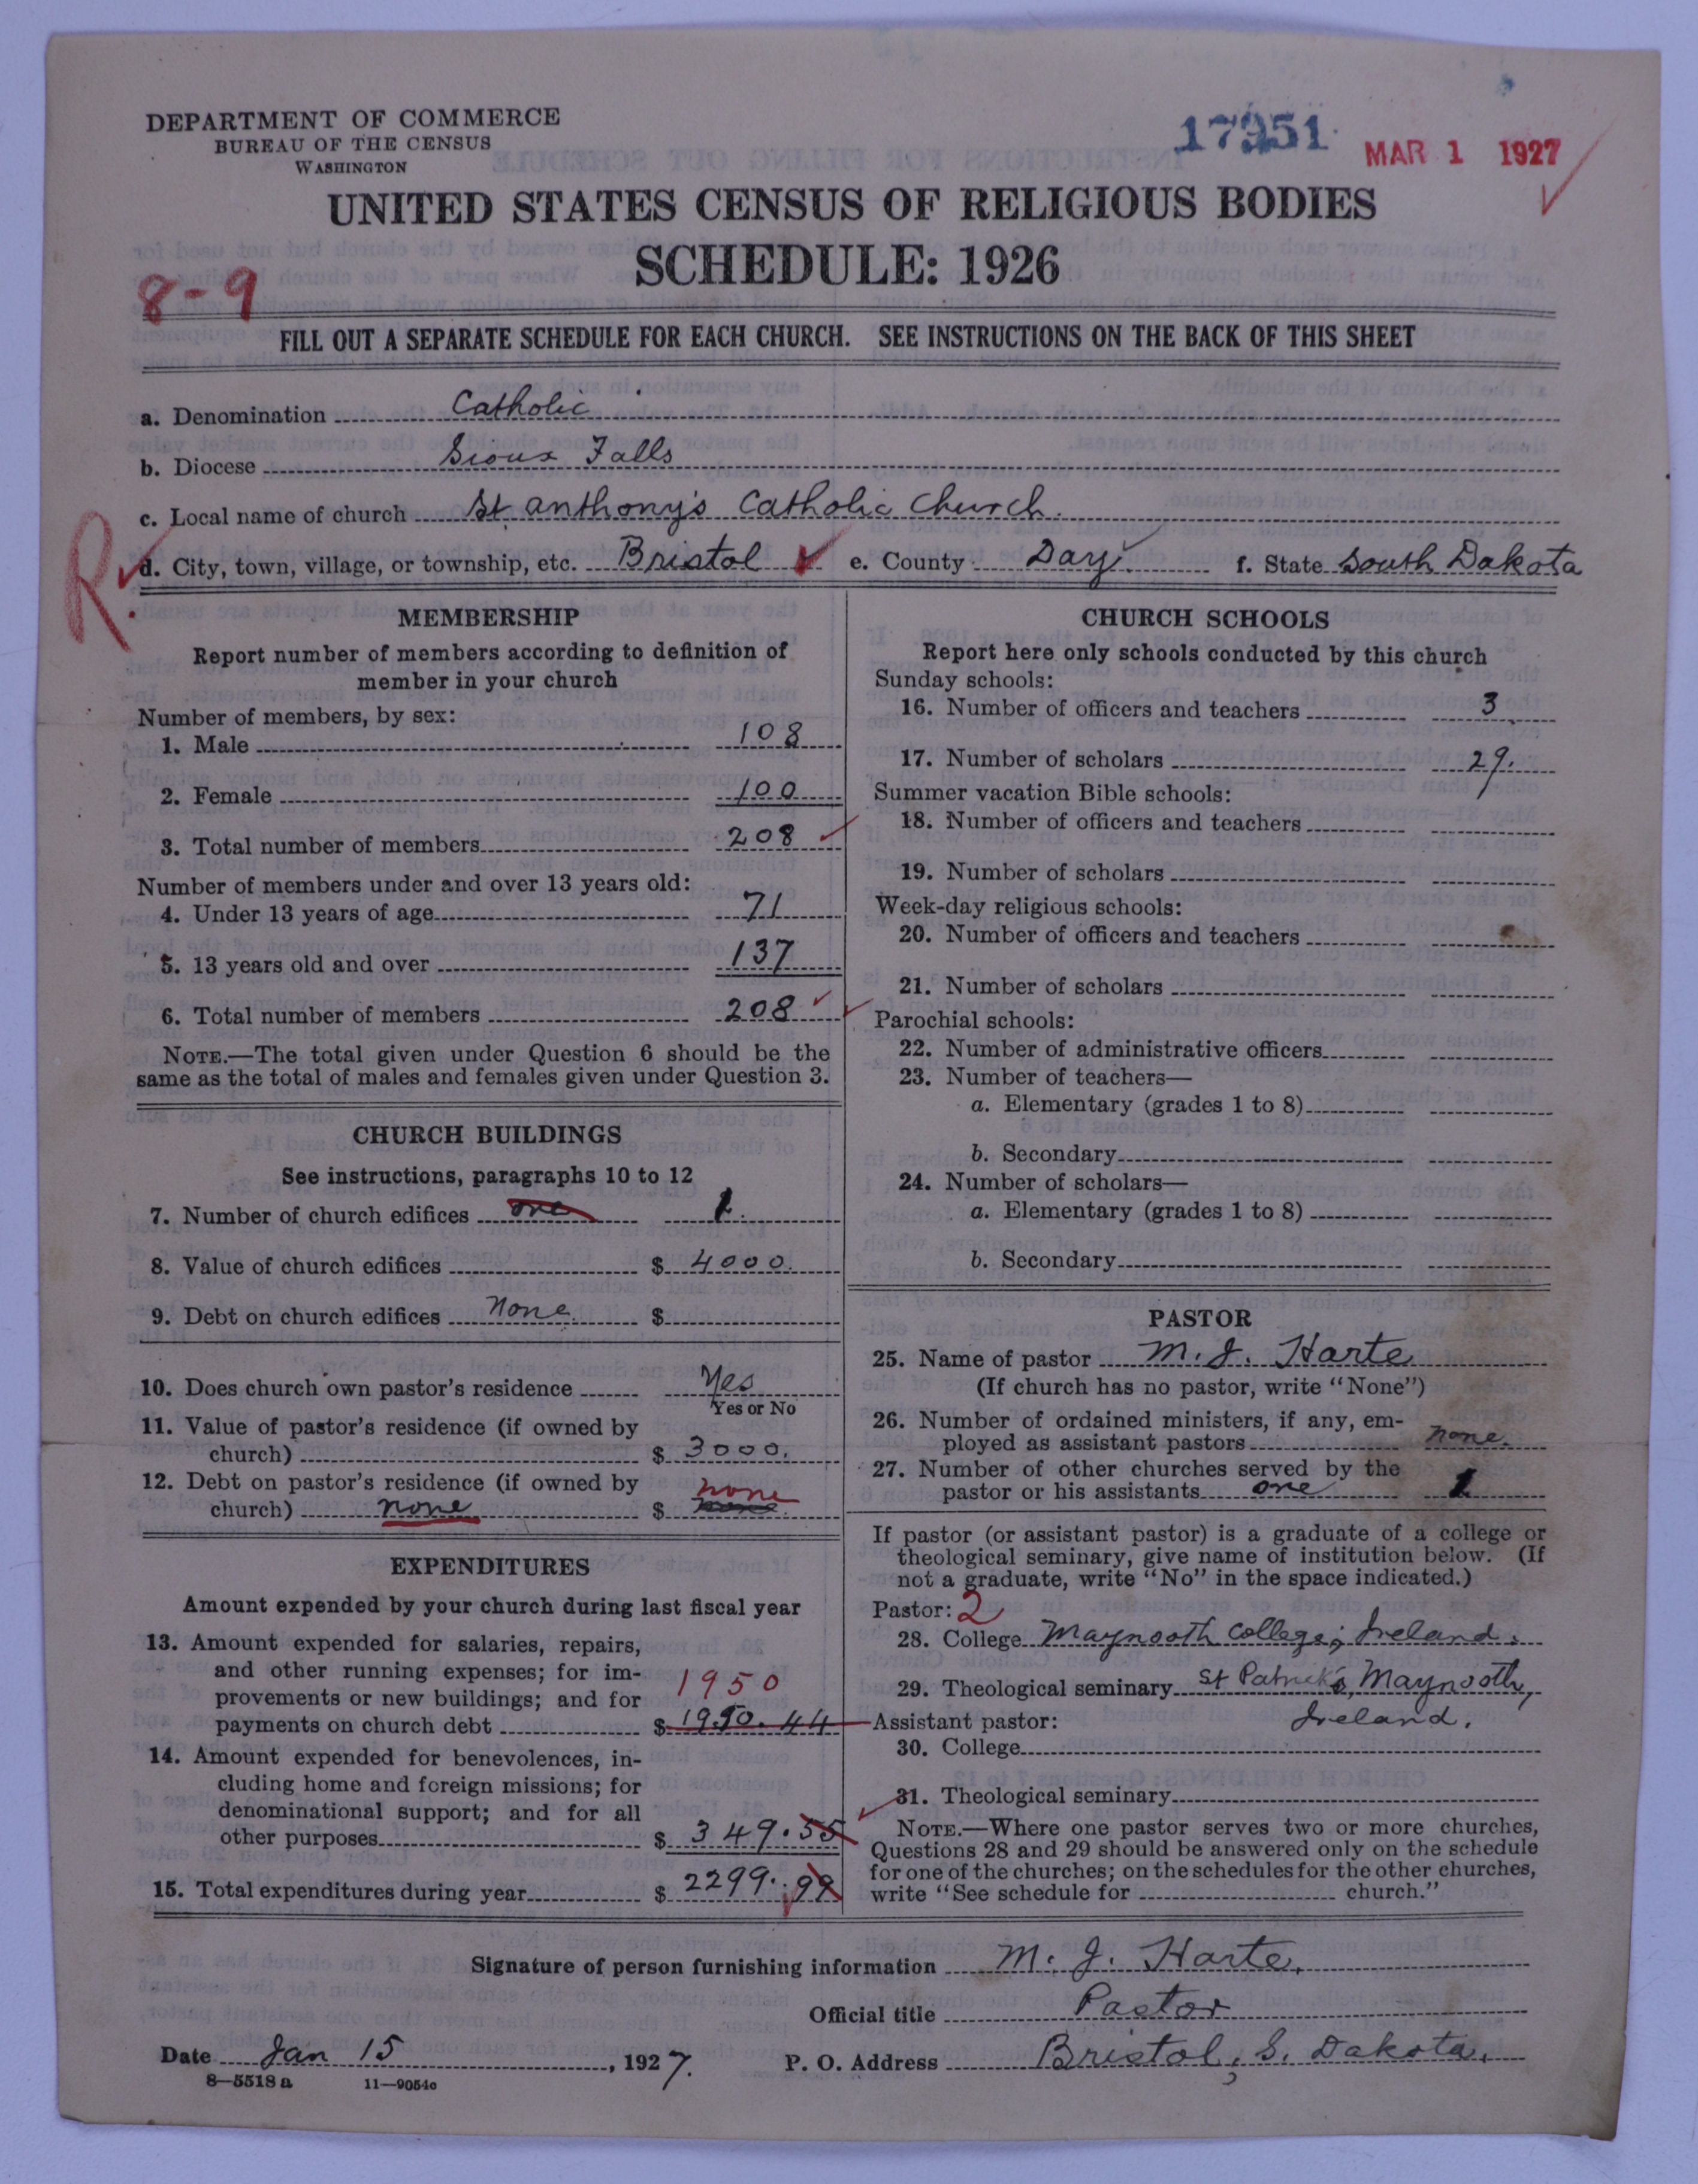 DEPARTMENT OF COMMERCE
BUREAU OF THE CENSUS
WASHINGTON
MAR 1 1927
UNITED STATES CENSUS OF RELIGIOUS BODIES
SCHEDULE: 1926
8-9
FILL OUT A SEPARATE SCHEDULE FOR EACH CHURCH. SEE INSTRUCTIONS ON THE BACK OF THIS SHEET
a. Denomination Catholic
b. Diocese Sioux Falls
c. Local name of church St. Anthony's Catholic Church.
R.
d. City, town, village, or township, etc. Bristol e. County Day. f. State South Dakota
MEMBERSHIP
Report number of members according to definition of
member in your church
Number of members, by sex:
1. Male 108
2. Female 100
3. Total number of members 208
Number of members under and over 13 years old:
4. Under 13 years of age 71
5. 13 years old and over 137
6. Total number of members 208
NOTE.—The total given under Question 6 should be the
same as the total of males and females given under Question 3.
CHURCH BUILDINGS
See instructions, paragraphs 10 to 12
7. Number of church edifices one 1.
8. Value of church edifices $ 4000.
9. Debt on church edifices None $
10. Does church own pastor's residence Yes
Yes or No
11. Value of pastor's residence (if owned by
church) $ 3000.
12. Debt on pastor's residence (if owned by
church) none $ none none
EXPENDITURES
Amount expended by your church during last fiscal year
13. Amount expended for salaries, repairs,
and other running expenses; for im-
provements or new buildings; and for 1950
payments on church debt $ 1950.44
14. Amount expended for benevolences, in-
cluding home and foreign missions; for
denominational support; and for all
other purposes $ 349.55
15. Total expenditures during year $ 2299.99
CHURCH SCHOOLS
Report here only schools conducted by this church
Sunday schools:
16. Number of officers and teachers 3
17. Number of scholars 29.
Summer vacation Bible schools:
18. Number of officers and teachers
19. Number of scholars
Week-day religious schools:
20. Number of officers and teachers
21. Number of scholars
Parochial schools:
22. Number of administrative officers
23. Number of teachers—
a. Elementary (grades 1 to 8)
b. Secondary
24. Number of scholars—
a. Elementary (grades 1 to 8)
b. Secondary
PASTOR
25. Name of pastor M. J. Harte
(If church has no pastor, write "None")
26. Number of ordained ministers, if any, em-
ployed as assistant pastors none.
27. Number of other churches served by the
pastor or his assistants one 1
If pastor (or assistant pastor) is a graduate of a college or
theological seminary, give name of institution below. (If
not a graduate, write "No" in the space indicated.)
Pastor: 2
28. College Maynooth College, Ireland.
29. Theological seminary St Patrick's, Maynooth,
Assistant pastor: Ireland.
30. College
31. Theological seminary
NOTE.—Where one pastor serves two or more churches,
Questions 28 and 29 should be answered only on the schedule
for one of the churches; on the schedules for the other churches,
write "See schedule for church."
Signature of person furnishing information M. J. Harte.
Official title Pastor
Date Jan 15, 1927. P. O. Address Bristol, S. Dakota.
8—5518 a 11—9054c